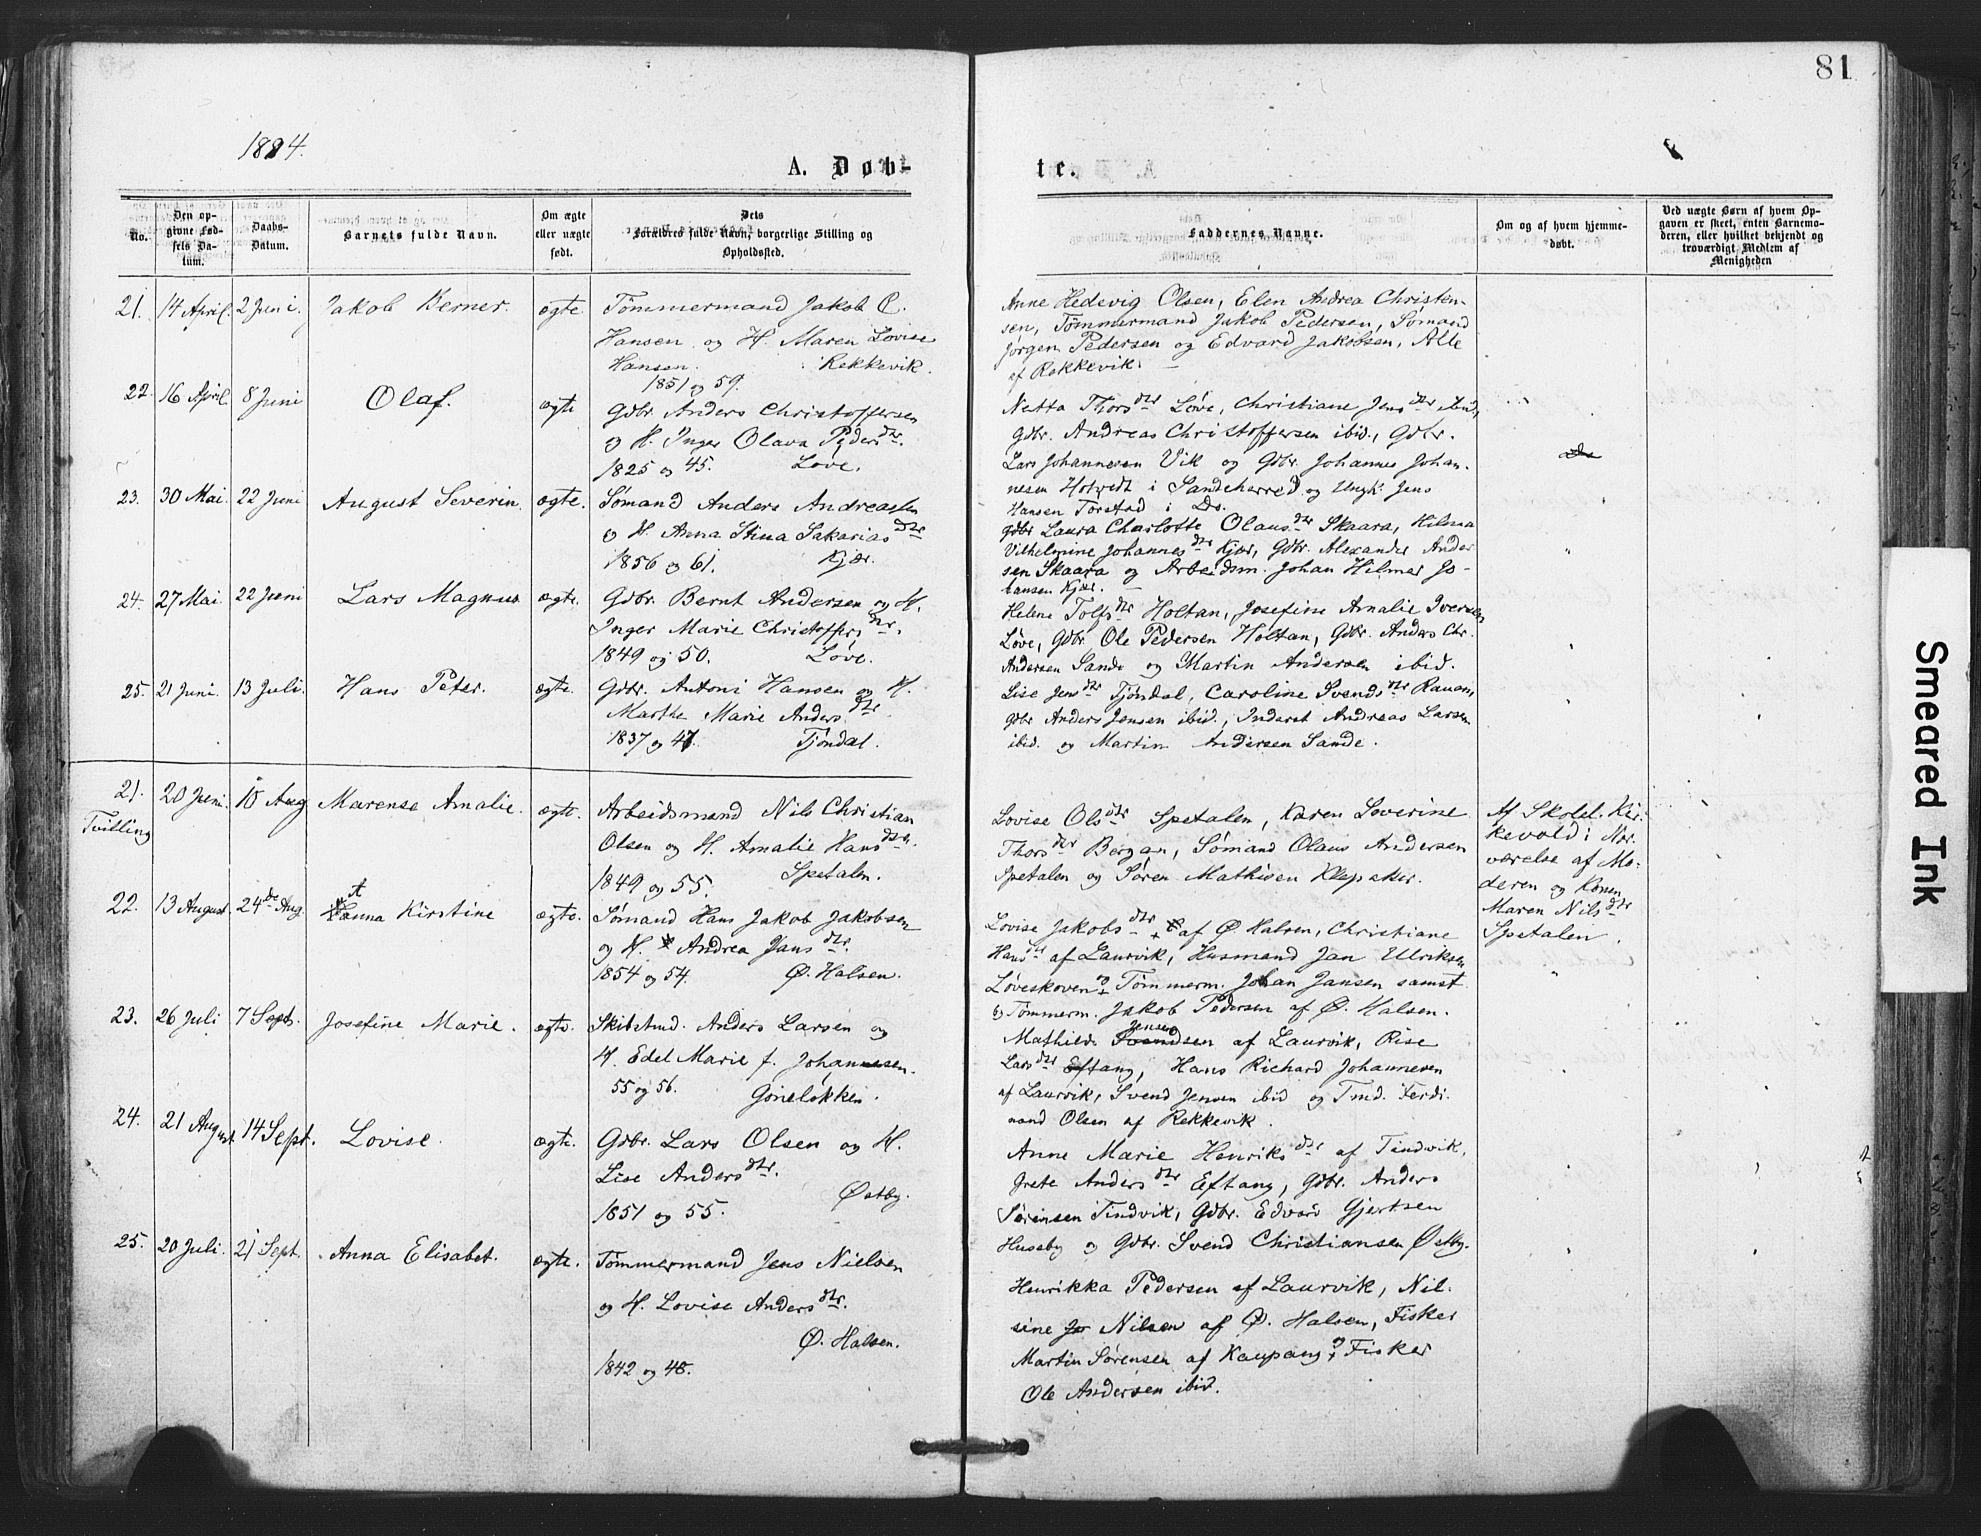 81
1884.
A. Døb-
te.
No.
Den op-
givne Fød-
sels Da-
tum.
Daabs-
Datum.
Barnets fulde Navn.
Om ægte
eller uægte
født.
Dets
Forældres fulde Navn, borgerlige Stilling og
Opholdssted.
Faddernes Navne.
Om og af hvem hjemme-
døbt.
Ved uægte Børn af hvem Op-
gaven er skeet, enten Barnemo-
deren, eller hvilket bekjendt og
troværdigt Medlem af
Menigheden
21. 14 April. 2 Juni. Jakob Berner. ægte
Tømmermand Jakob C.
Hansen og H. Maren Lovise
Hansen. Rekkevik.
1851 og 59.
Anne Hedevig Olsen, Elen Andrea Christen-
sen, Tømmermand Jakob Pedersen, Sømand
Jørgen Pedersen og Edvard Jakobsen, Alle
af Rekkevik.
22. 16 April. 8 Juni Olaf. ægte
Gdbr. Anders Christoffersen
og H. Inger Olava Peders dtr.
1825 og 45. Løve.
Netta Thors dtr Løve, Christiane Jens dtr ibid,
Gdbr. Andreas Christoffersen ibid., Gdbr.
Lars Johannesen Vik og Gdbr. Johannes Johan-
nesen Hotvedt i Sandeherred og Ungk. Jens
Hansen Torstad i Do.
23. 30 Mai. 22 Juni August Severin. ægte.
Sømand Anders Andreassen
og H. Anna Stina Sakarias dtr
1856 og 61. Kjær.
Gdbr Laura Charlotte Olaus dtr Skaara, Hilma
Vilhelmine Johannes dtr Kjær, Gdbr. Alexander Ander
sen Skaara og Arbeidsm. Johan Hilmer Jo-
hansen Kjær.
24. 27 Mai. 22 Juni Lars Magnus ægte.
Gdbr. Bernt Andersen og H.
Inger Marie Christoffers dtr.
1849 og 50. Løve.
Helene Tolfs dtr Holtan, Josefine Amalie Iversen
Løve, Gdbr. Ole Pedersen Holtan, Gdbr. Anders Chr.
Andersen Sande og Martin Andersen ibid.
25. 21 Juni. 13 Juli. Hans Peter. ægte.
Gdbr. Antoni Hansen og H.
Marthe Marie Anders dtr
1837 og 47. Tjøndal.
Lise Jens dtr Tjøndal, Caroline Svends dtr Rauan,
Gdbr Anders Jensen ibid., Inderst Andreas Larsen
ibid. og Martin Andersen Sande.
21. Tvilling 20 Juni. 10 Aug Marense Amalie. ægte.
Arbeidsmand Nils Christian
Olsen og H. Amalie Hans dtr.
1849 og 55. Spetalen.
Lovise Ols dtr Spetalen, Karen Severine
Thors dtr Bergan, Sømand Olaus Andersen
Spetalen og Søren Mathisen Klepaker.
Af Skolel. Kir-
kevold i Nær-
værelse af Mo-
deren og Konen
Maren Nils dtr
Spetalen.
22. 13 August. 24de Aug. Hanna Kirstine ægte.
Sømand Hans Jakob Jakobsen
og H. Andrea Jans dtr.
1854 og 54. Ø. Halsen.
Lovise Jakobs dtr af Ø Halsen, Christiane
Hans dtr af Laurvik, Husmand Jan Ulriksen
Løveskoven og Tømmerm. Johan Jansen samst
og Tømmerm. Jakob Pedersen af Ø. Halsen.
23. 26 Juli 7 Sept. Josefine Marie. ægte.
Skibstmd. Anders Larsen og
H. Edel Marie f. Johannesen.
55 og 56. Goneløkken.
Mathilde Jensen af Laurvik, Rise
Lars dtr Eftang, Hans Richard Johannesen
af Laurvik, Svend Jensen ibid og Tmd. Ferdi-
nand Olsen af Rekkevik.
24. 21 August 14 Sept. Lovise. ægte.
Gdbr. Lars Olsen og H.
Lise Anders dtr.
Østby.
1851 og 55.
Anne Marie Henriks dtr af Tindvik,
Grete Anders dtr Eftang, Gdbr. Anders
Sørensen Tindvik, Gdbr. Edvard Gjertsen
Huseby og Gdbr. Svend Christiansen Østby.
25. 20 Juli. 21 Sept. Anna Elisabet. ægte.
Tømmermand Jens Nielsen
og H. Lovise Anders dtr.
Ø. Halsen.
1842 og 48.
Henrikka Pedersen af Laurvik, Nil-
sine Nilsen af Ø. Halsen, Fisker
Martin Sørensen af Kaupang og Fisker
Ole Andersen ibid.
Smeared Ink